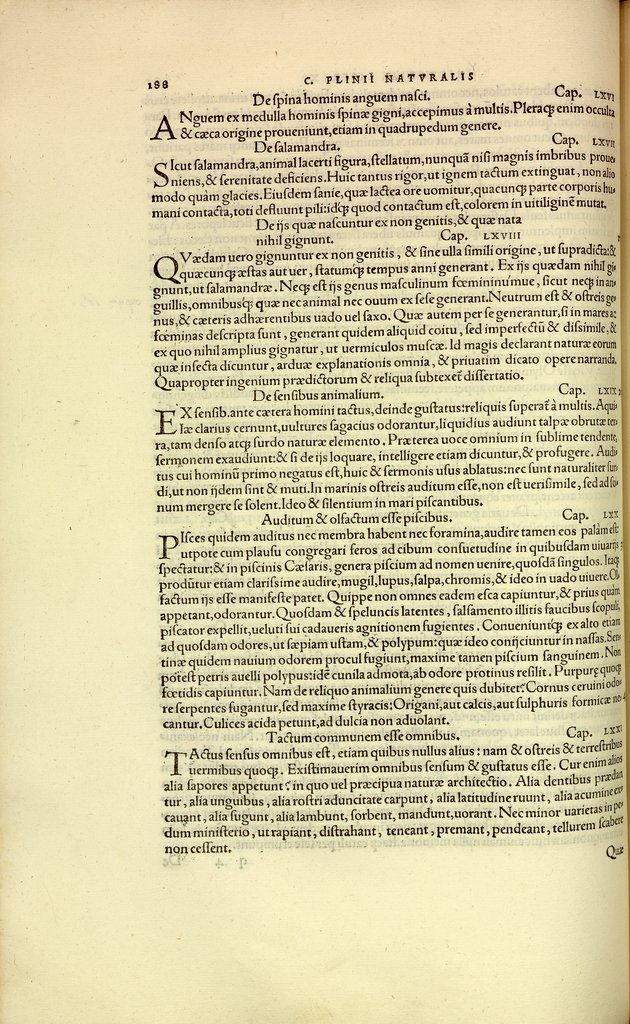 188 C. PLINII NATVRALIS
De spina hominis anguem nasci. Cap. LXVI
ANguem ex medulla hominis spinæ gigni, accepimus à multis. Pleraqꝫ enim occulta
& cæca origine proueniunt, etiam in quadrupedum genere.
De salamandra. Cap. LXVII
SIcut salamandra, animal lacerti figura, stellatum, nunquã nisi magnis imbribus proue
niens, & serenitate deficiens. Huic tantus rigor, ut ignem tactum extinguat, non alio
modo quàm glacies. Eiusdem sanie, quæ lactea ore uomitur, quacunqꝫ parte corporis hu
mani contacta, toti defluunt pili: idqꝫ quod contactum est, colorem in uitiliginẽ mutat.
De ijs quæ nascuntur ex non genitis, & quæ nata
nihil gignunt. Cap. LXVIII
QVædam uero gignuntur ex non genitis, & sine ulla simili origine, ut supradicta: &
quæcunqꝫ æstas aut uer, statumqꝫ tempus anni generant. Ex ijs quædam nihil gi
gnunt, ut salamandræ. Neqꝫ est ijs genus masculinum fœmininumue, sicut neqꝫ in an
guillis, omnibusqꝫ quæ nec animal nec ouum ex sese generant. Neutrum est & ostreis ge
nus, & cæteris adhærentibus uado uel saxo. Quæ autem per se generantur, si in mares ac
fœminas descripta sunt, generant quidem aliquid coitu, sed imperfectũ & dissimile, &
ex quo nihil amplius gignatur, ut uermiculos muscæ. Id magis declarant naturæ eorum
quæ insecta dicuntur, arduæ explanationis omnia, & priuatim dicato opere narranda.
Quapropter ingenium prædictorum & reliqua subtexet̃ dissertatio.
De sensibus animalium. Cap. LXIX
EX sensib. ante cætera homini tactus, deinde gustatus: reliquis superat̃ à multis. Aqui
læ clarius cernunt, uultures sagacius odorantur, liquidius audiunt talpæ obrutæ ter
ra, tam denso atqꝫ surdo naturæ elemento. Præterea uoce omnium in sublime tendente,
sermonem exaudiunt: & si de ijs loquare, intelligere etiam dicuntur, & profugere. Audi
tus cui hominũ primo negatus est, huic & sermonis usus ablatus: nec sunt naturaliter sur
di, ut non ijdem sint & muti. In marinis ostreis auditum esse, non est uerisimile, sed ad so
num mergere se solent. Ideo & silentium in mari piscantibus.
Auditum & olfactum esse piscibus. Cap. LXX
PIsces quidem auditus nec membra habent nec foramina, audire tamen eos palàm est:
utpote cum plausu congregari feros ad cibum consuetudine in quibusdam uiuarijs
spectatur: & in piscinis Cæsaris, genera piscium ad nomen uenire, quosdã singulos. Itaqꝫ
prodũtur etiam clarissime audire, mugil, lupus, salpa, chromis, & ideo in uado uiuere. Ol
factum ijs esse manifeste patet. Quippe non omnes eadem esca capiuntur, & prius quàm
appetant, odorantur. Quosdam & speluncis latentes, salsamento illitis faucibus scopuli,
piscator expellit, ueluti sui cadaueris agnitionem fugientes. Conueniuntqꝫ ex alto etiam
ad quosdam odores, ut sæpiam ustam, & polypum: quæ ideo conijciuntur in nassas. Sen
tinæ quidem nauium odorem procul fugiunt, maxime tamen piscium sanguinem. Non
potest petris auelli polypus: idẽ cunila admota, ab odore protinus resilit. Purpuræ quoqꝫ
fœtidis capiuntur. Nam de reliquo animalium genere quis dubitet? Cornus ceruini odo
re serpentes fugantur, sed maxime styracis: Origani, aut calcis, aut sulphuris formicæ ne
cantur. Culices acida petunt, ad dulcia non aduolant.
Tactum communem esse omnibus. Cap. LXXI
TActus sensus omnibus est, etiam quibus nullus alius: nam & ostreis & terrestribus
uermibus quoqꝫ. Existimauerim omnibus sensum & gustatus esse. Cur enim alios
alia sapores appetunt? in quo uel præcipua naturæ architectio. Alia dentibus prædan
tur, alia unguibus, alia rostri aduncitate carpunt, alia latitudine ruunt, alia acumine ex
cauant, alia sugunt, alia lambunt, sorbent, mandunt, uorant. Nec minor uarietas in pe
dum ministerio, ut rapiant, distrahant, teneant, premant, pendeant, tellurem scabere
non cessent.
Quæ